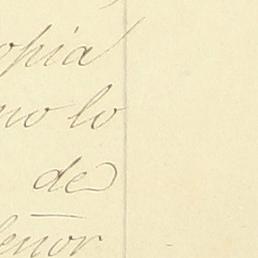 opia
no lo
de
señor